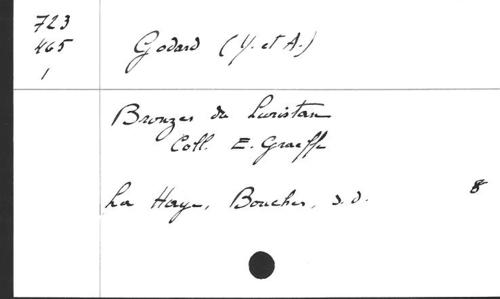 723
465
1
Godard (Y. et A.)
Bronzes du Luristan
Coll. E. Graeffe
La Haye, Boucher, s.d. 8